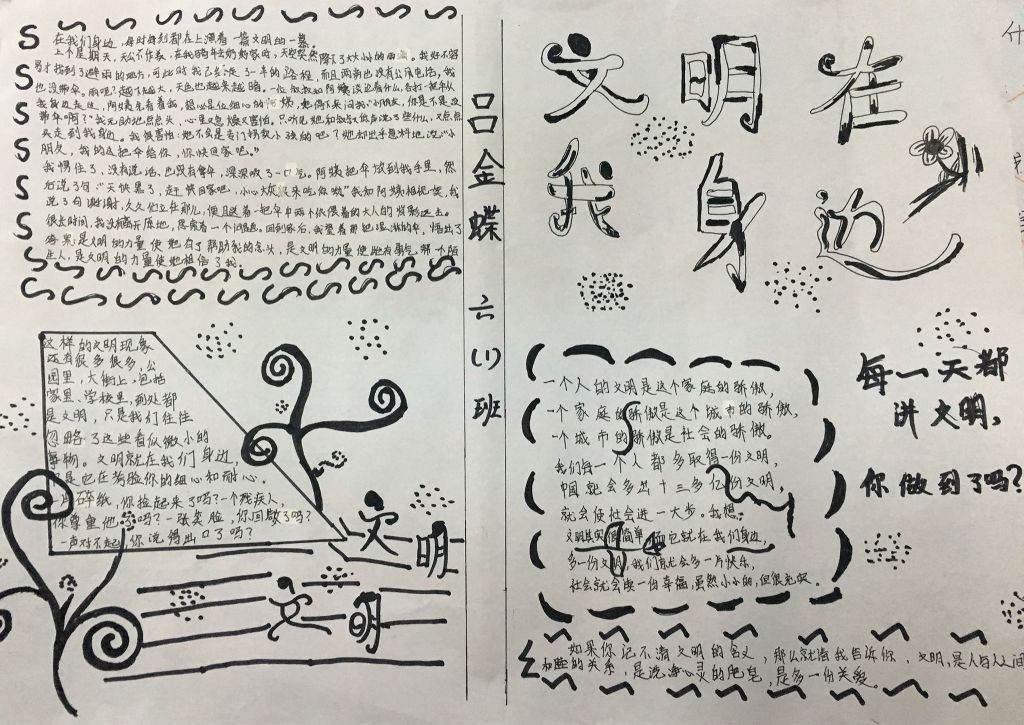 在我们身边，每时每刻都在上演着一幕文明的一幕。
上个星期天，天公不作美，在我骑车去奶奶家时，天空突然降下了大大小小的雨滴。我好不容
易才找到了避雨的地方，可此时我已经走了一半的路程，而且两旁也没有公用电话，我
也没带伞。雨呢？越下越大，天色也越来越暗。一位叔叔和阿姨谈论着什么，击打一把伞从
我身边走过，阿姨先看着我，
带伞啊？”我无助地点点头，心里又急燥又害怕。只听见她和叔叔低声说了些什么，又点点
头走到我身边。我很害怕：她不会是专门拐骗小孩的吧？她却出乎意料地说：“小
朋友，我的这把伞给你，你快回家吧。”
我愣住了，没有说话，也没有拿伞，深深吸了一口气。阿姨把伞放到我手里，然
后说了句：“天快黑了，赶快回家吧，小心大灰狼来吃你哦”我和阿姨相视一笑，我
说了句谢谢，久久伫立在那儿，
很长时间，我没离开原地，思索着一个问题。回到家后，我望着那把湿漉漉的伞，悟出了
答案：是文明的力量使她有了帮助我的念头，是文明的力量使她有勇气帮个陌
生人，是文明的力量使她相信了我。
吕金蝶 六（1）班
文明在
我身边
这样的文明现象
还有很多很多，公
园里，大街上，包括
家里、学校里，到处都
是文明，只是我们往往
忽略了这些看似微小的
事物。文明就在我们身边，
只是它在考验你的细心和耐心。
一片碎纸，你捡起来了吗？一个残疾人，
你尊重他了吗？一张笑脸，你回敬了吗？
一声对不起，你说得出口了吗？
文明
文明
一个人的文明是这个家庭的骄傲，
一个家庭的骄傲是这个城市的骄傲，
一个城市的骄傲是社会的骄傲。
我们每一个人都多取得一份文明，
中国就会多出十三多亿份文明，
就会使社会进一大步。我想：
文明其实很简单，而它就在我们身边，
多一份文明，我们就会多一片快乐，
社会就会换一份幸福，虽然小小的，但很充实。
每一天都
讲文明，
你做到了吗？
如果你记不清文明的含义，那么就请我告诉你，文明，是人与人之间
和睦的关系，是洗涤心灵的肥皂，是多一份关爱。